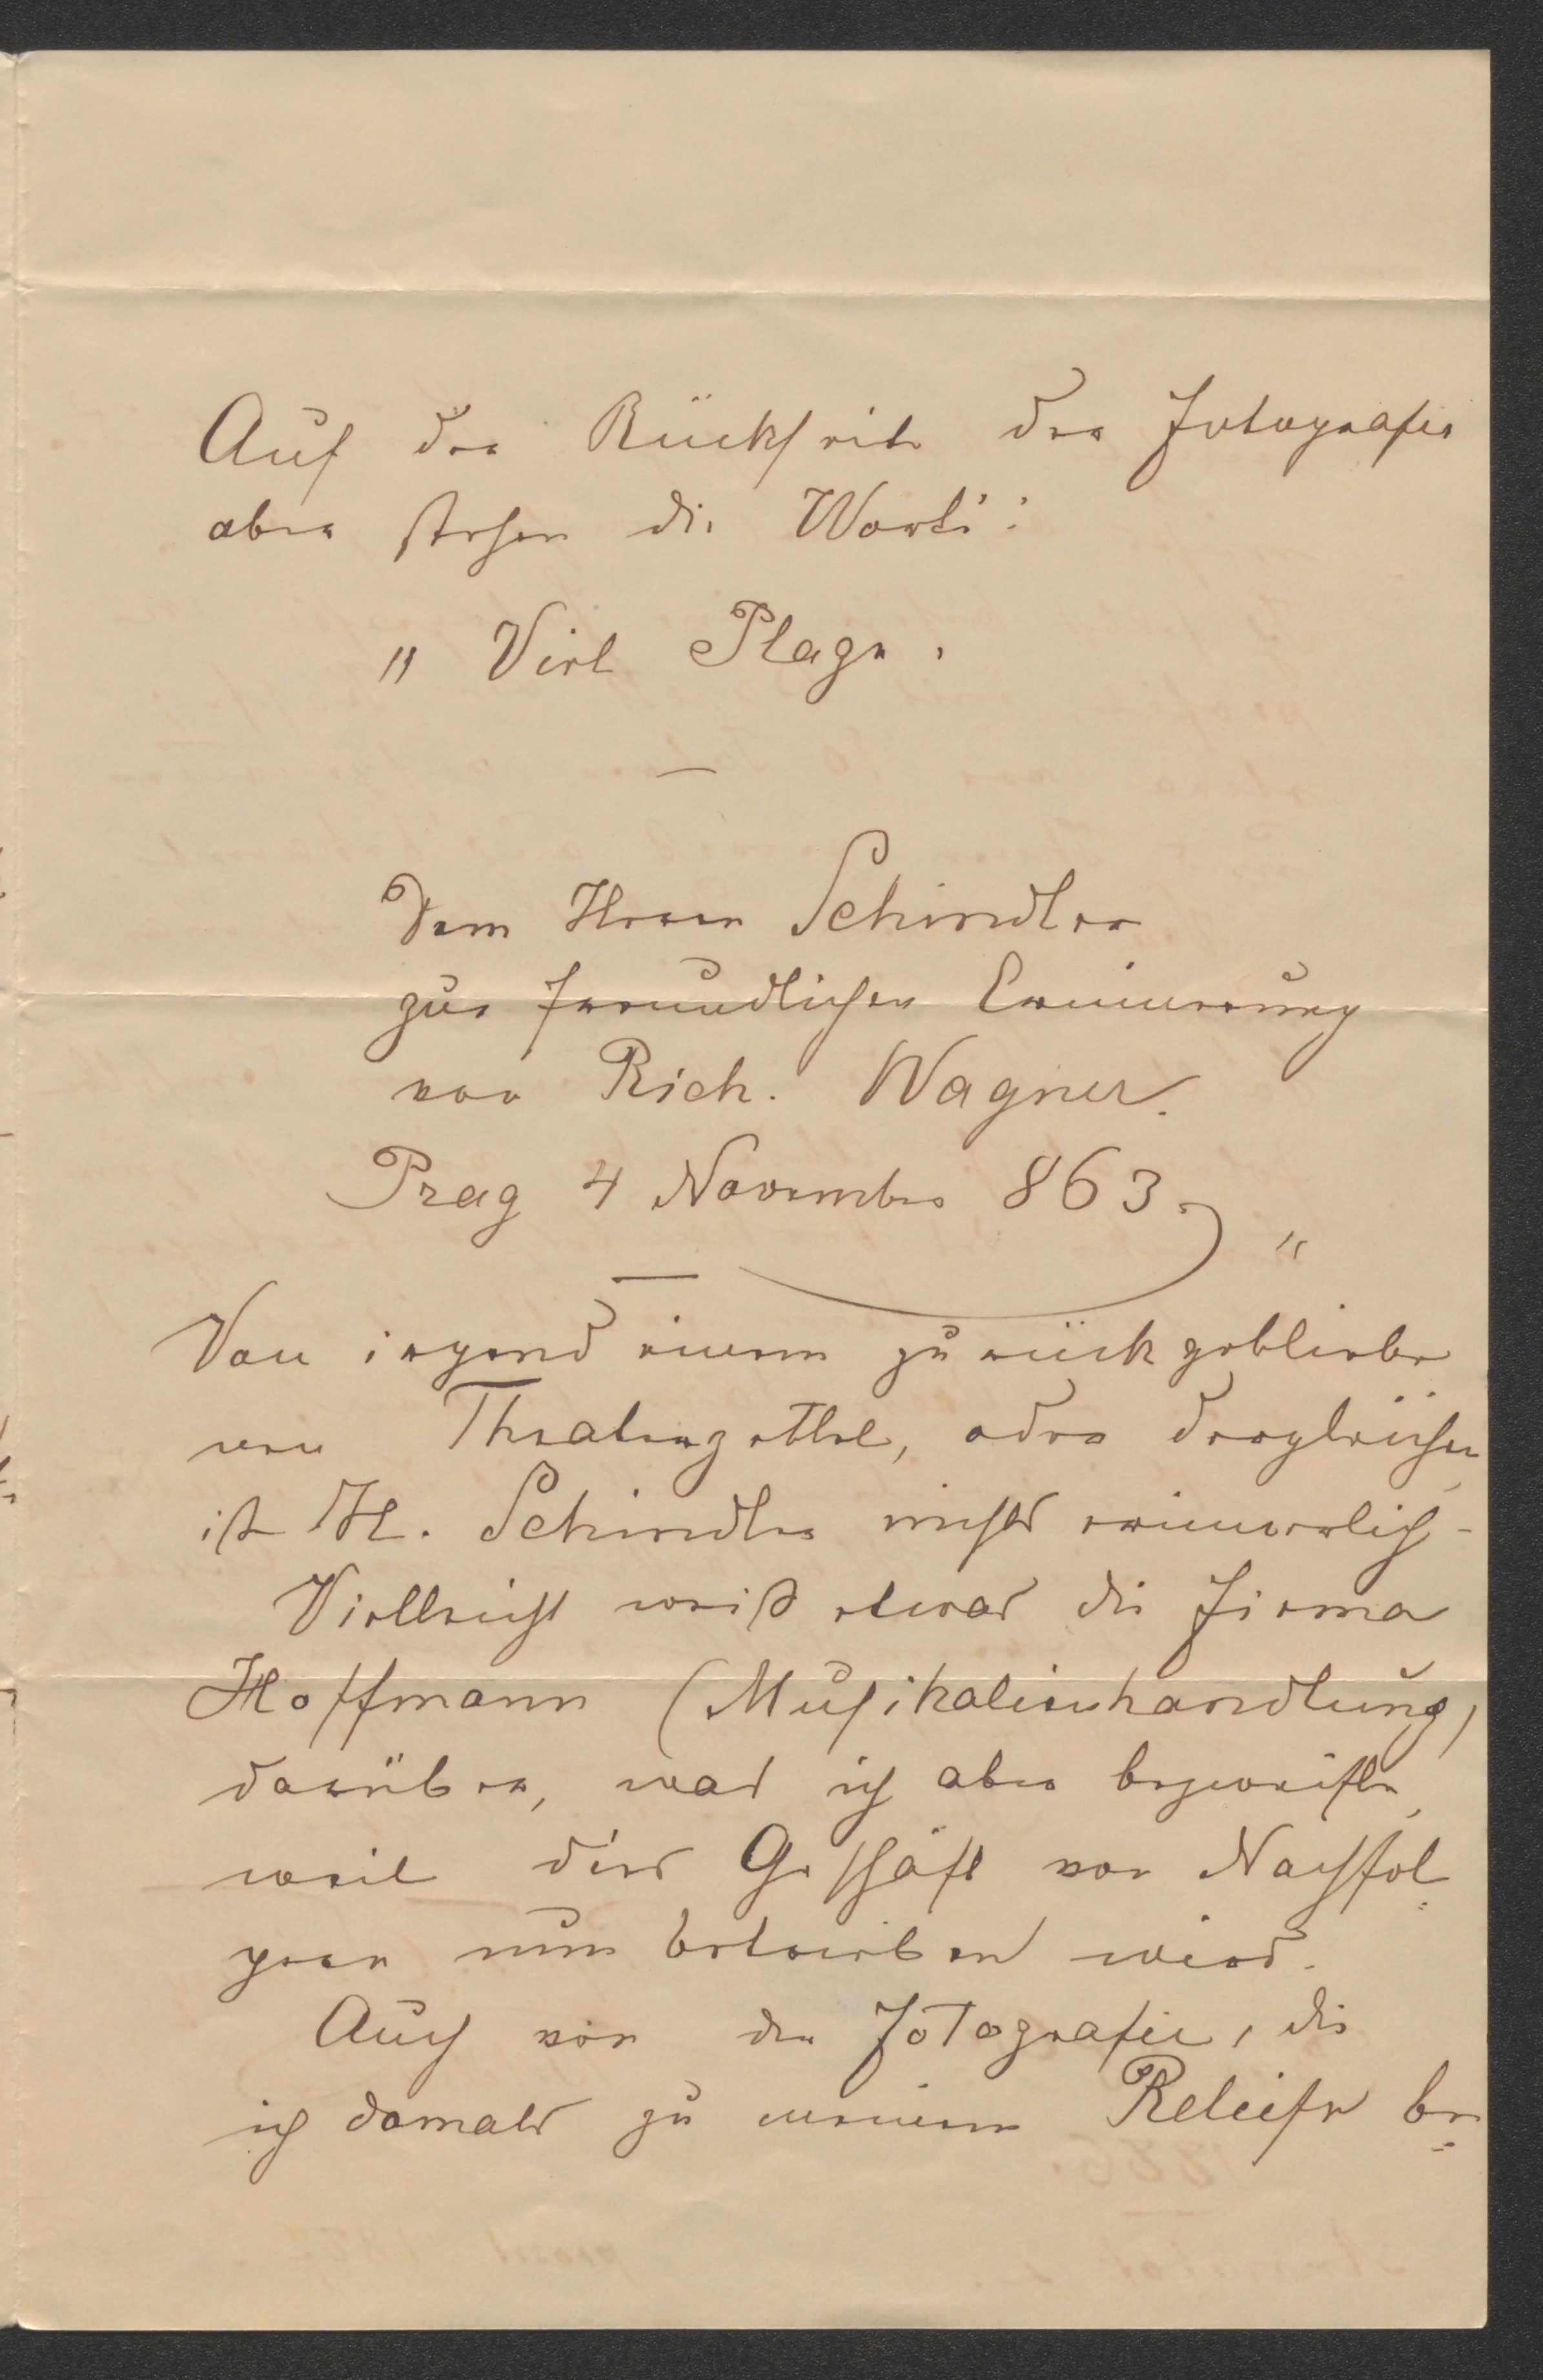 Auf der Rückseite der Fotografie
aber stehen die Worte:
„ Viel Plage.
—
Dem Herrn Schindler
zur freundlichen Erinnerung
von Rich. Wagner.
Prag 4 November 863. "
—
Von irgend einem zurückgebliebe
nen Theaterzettel, oder dergleichen
ist H. Schindler nicht erinnerlich -
Vielleicht weiß etwas die Firma
Hoffmann (Musikalienhandlung)
darüber, was ich aber bezweifle,
weil dies Geschäft von Nachfol-
gern nun betrieben wird.
Auch von der Fotografie, die
ich damals zu meinem Reliefe be-